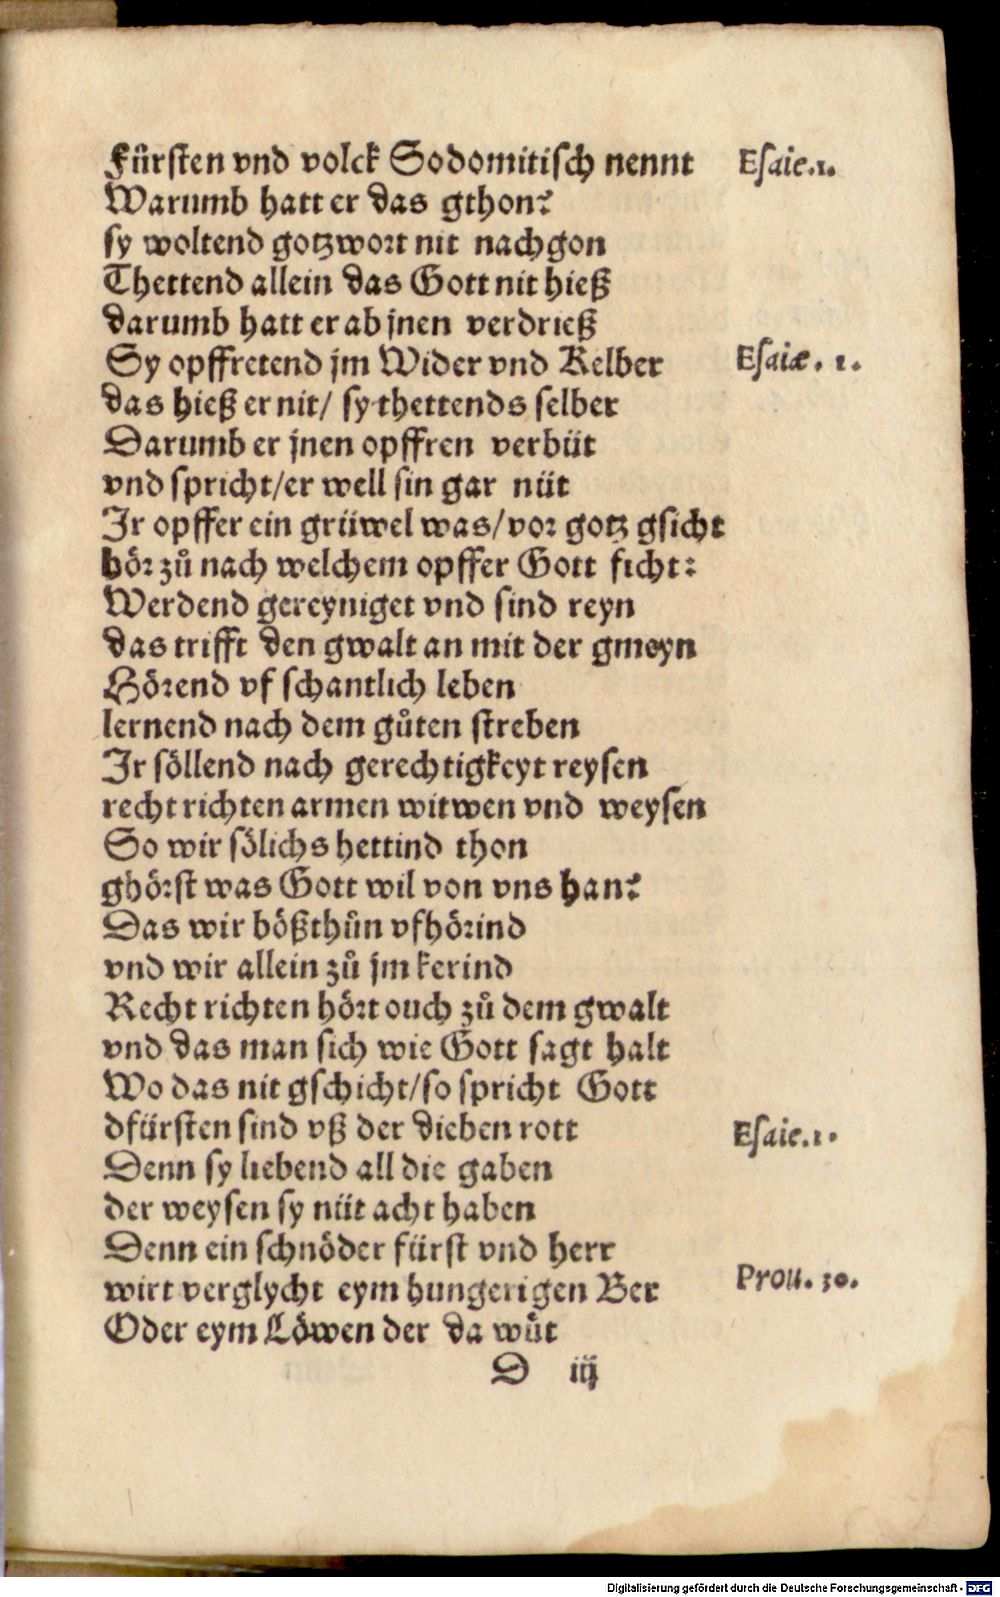 Fürsten vnd volck Sodomitisch nennt Esaie.1.
Warumb hatt er das gthon?
sy woltend gotzwort nit nachgon
Thettend allein das Gott nit hieß
darumb hatt er ab jnen verdrieß
Sy opffretend jm Wider vnd Kelber Esaiæ. 1.
das hieß er nit/ sy thettends selber
Darumb er jnen opffren verbüt
vnd spricht/er well sin gar nüt
Jr opffer ein grüwel was/vor gotz gsicht
hör zů nach welchem opffer Gott ficht:
Werdend gereyniget vnd sind reyn
das trifft den gwalt an mit der gmeyn
Hörend vf schantlich leben
lernend nach dem gůten streben
Jr söllend nach gerechtigkeyt reysen
recht richten armen witwen vnd weysen
So wir sölichs hettind thon
ghörst was Gott wil von vns han?
Das wir bößthůn vfhörind
vnd wir allein zů jm kerind
Recht richten hört ouch zů dem gwalt
vnd das man sich wie Gott sagt halt
Wo das nit gschicht/so spricht Gott
dfürsten sind vß der dieben rott Esaie.1.
Denn sy liebend all die gaben
der weysen sy nüt acht haben
Denn ein schnöder fürst vnd herr
wirt verglycht eym hungerigen Ber Prou. 30.
Oder eym Löwen der da wůt
D iij
Digitalisierung gefördert durch die Deutsche Forschungsgemeinschaft - DFG